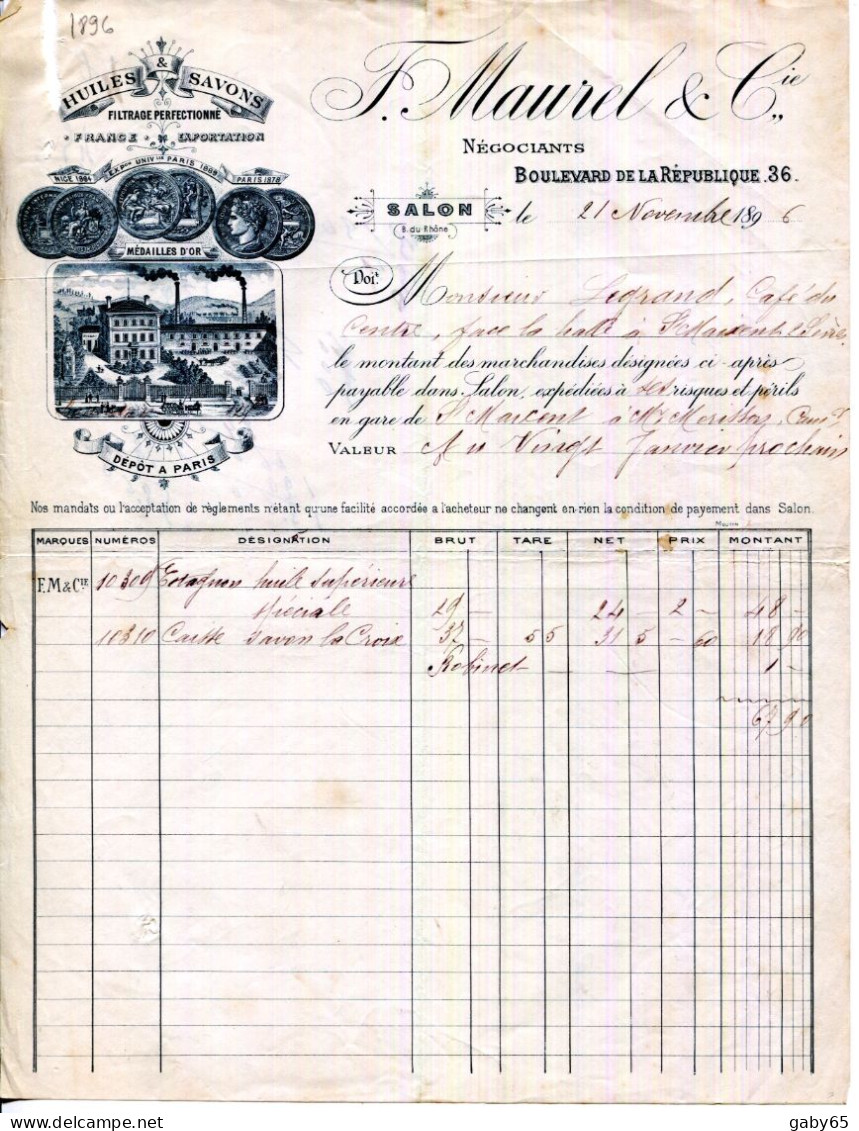 1896
HUILES & SAVONS
FILTRAGE PERFECTIONNÉ
FRANCE EXPORTATION
NICE 1884 EXPON UNIVLLE PARIS 1889 PARIS 1878
MÉDAILLES D'OR
DÉPÔT A PARIS
F. Maurel & Cie
NÉGOCIANTS
BOULEVARD DE LA RÉPUBLIQUE.36.
SALON le 21 Novembre 1896
B. du Rhône
Doit
Monsieur Legrand, Café du
Centre, face la halle à St Maixent
le montant des marchandises désignées ci-après
payable dans Salon, expédiées à ses risques et périls
en gare de St Maixent à Mr
VALEUR Au Vingt Janvier prochain
Nos mandats ou l'acceptation de règlements n'étant qu'une facilité accordée a l'acheteur ne changent en rien la condition de payement dans Salon.
MARQUES NUMÉROS DÉSIGNATION BRUT TARE NET PRIX MONTANT
F.M & CIE 10309 Estagnon huile supérieure
spéciale 29 — 24 — 2 — 48 —
10310 Caisse savon la Croix 37 — 5 5 31 5 — 60 18 90
Robinet — — 1 —
67 90
gaby65